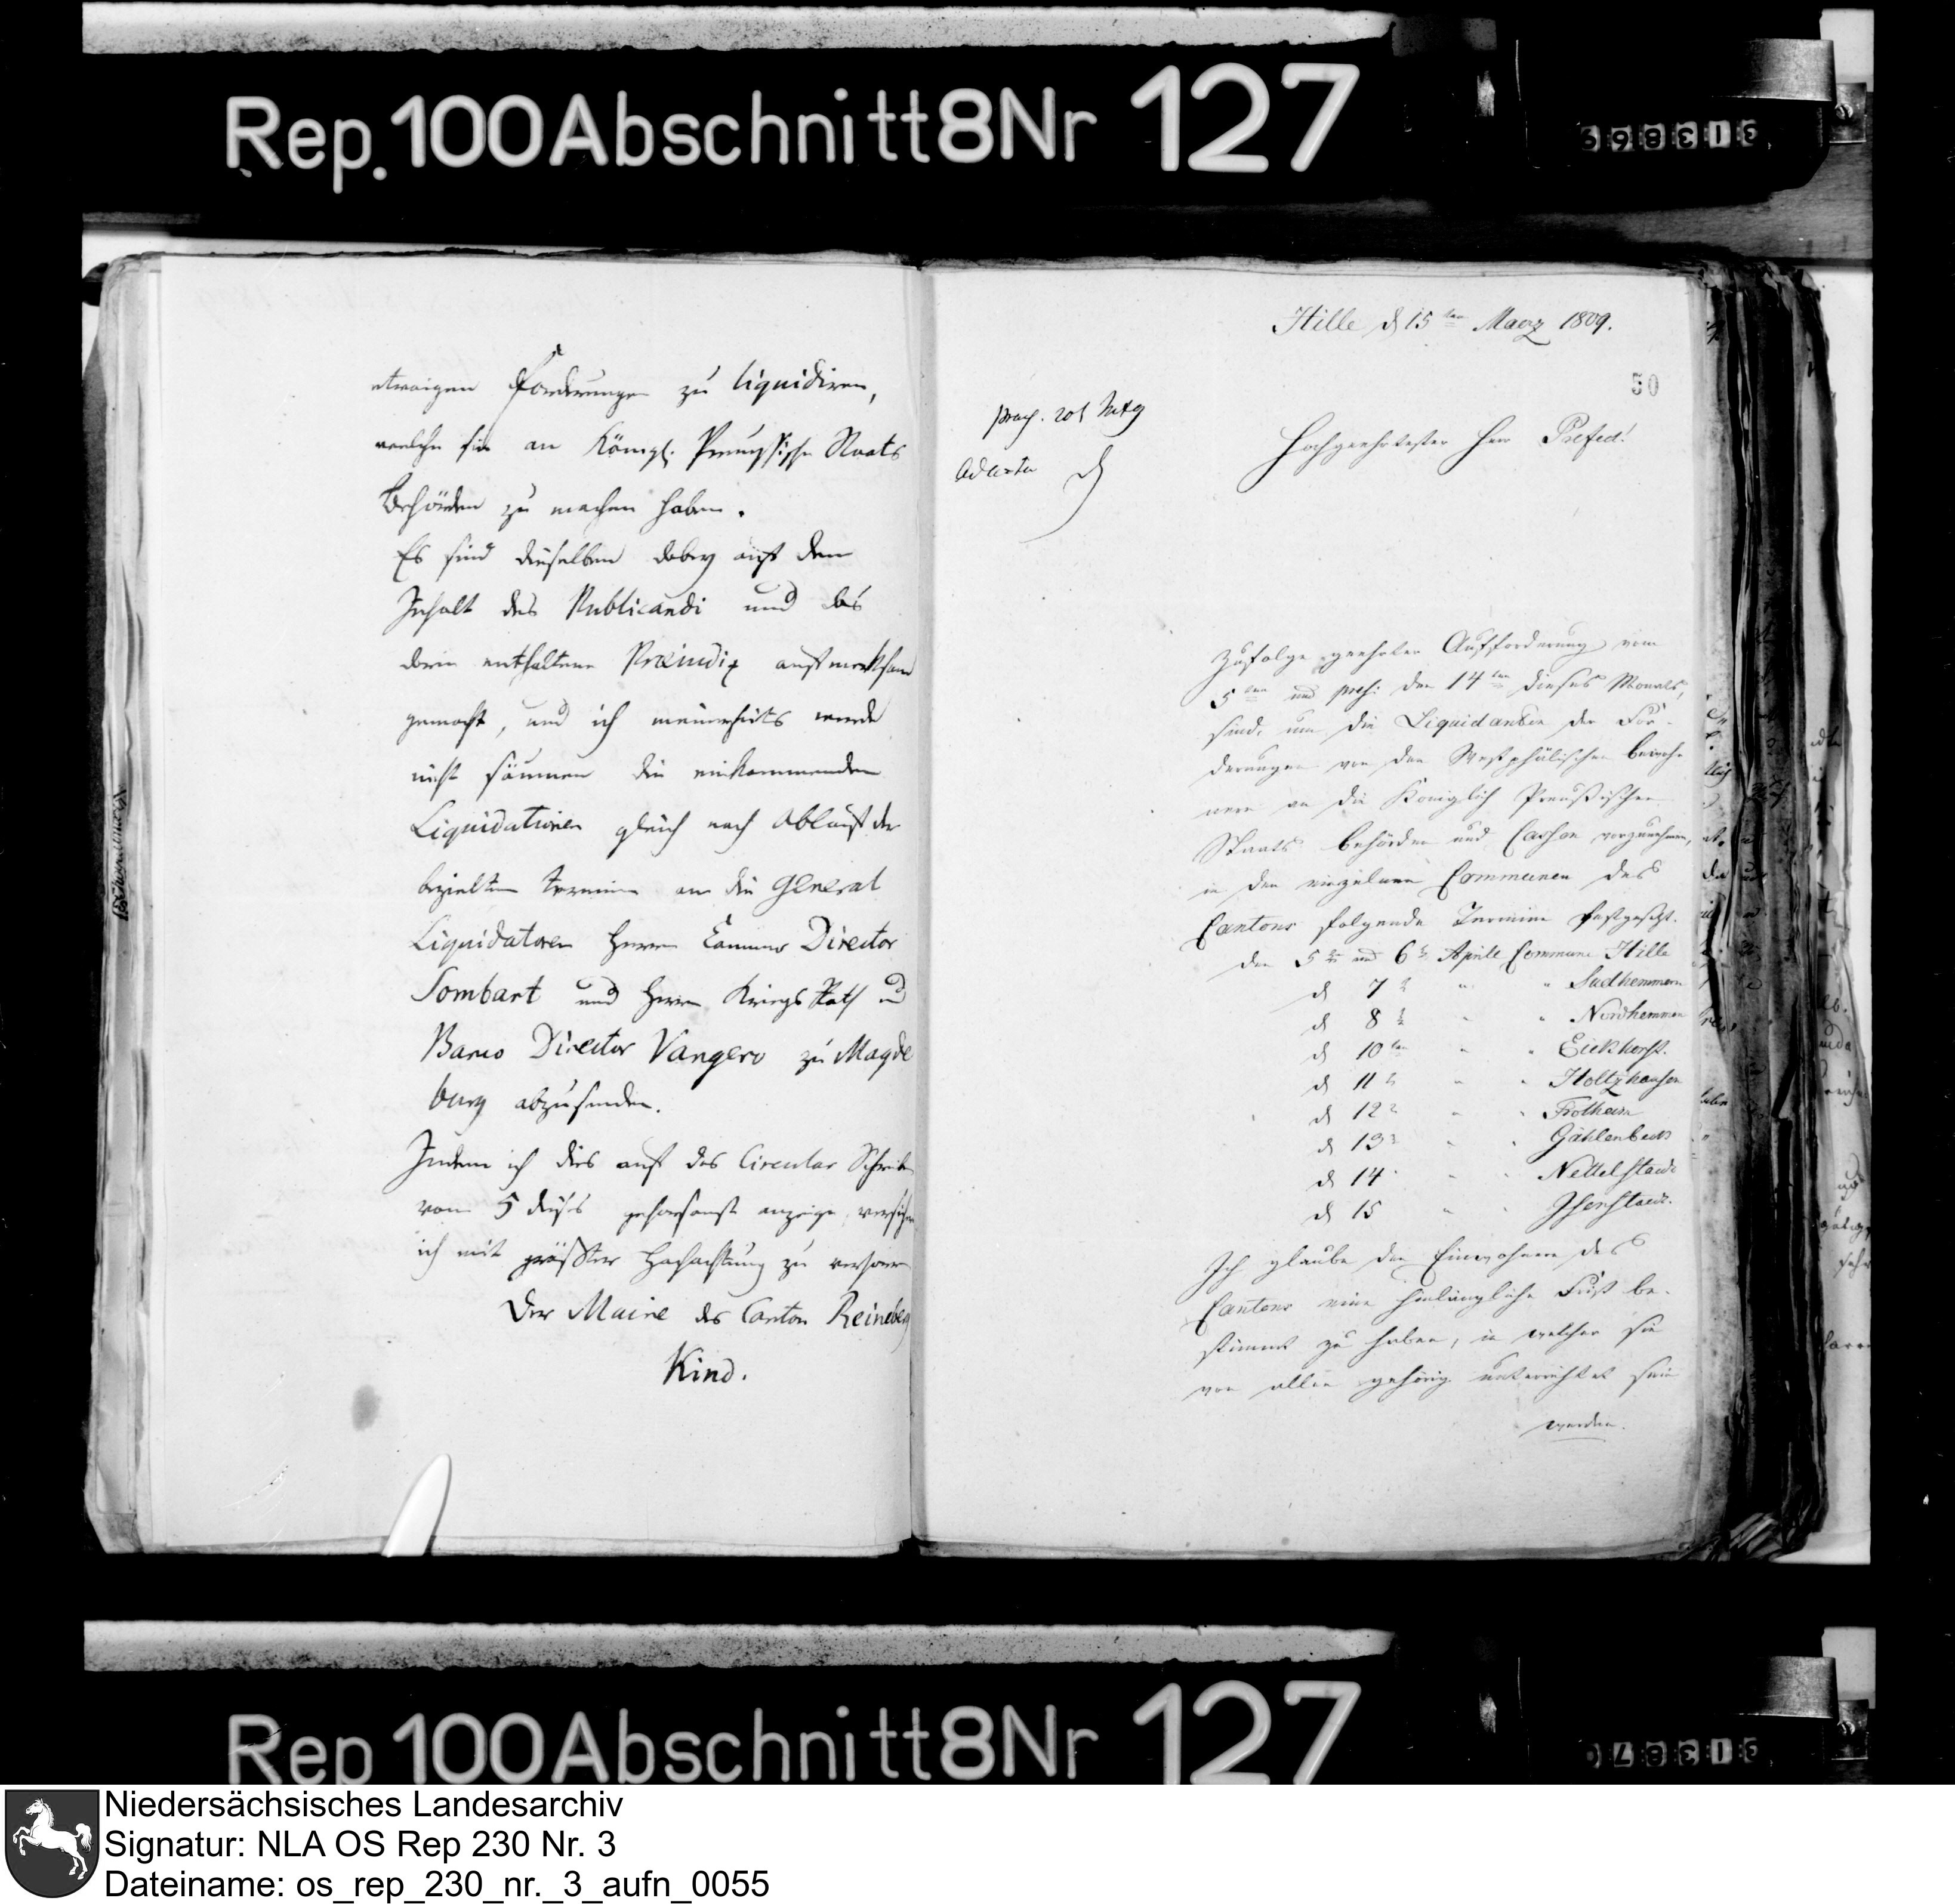 Rep. 100 Abschnitt 8 Nr 127
313869
etwaigen Forderungen zu liquidiren,
welche sie an Königl. Preußische Staats
Behörden zu machen haben.
Es sind dieselben dabey auf den
Inhalt des Publicandi und das
darin enthaltene Præjudiz aufmerksam
gemacht, und ich meinerseits werde
nicht säumen die einkommenden
Liquidationen gleich nach Ablauf der
bezielten Termine an die General
Liquidatoren Herrn Cammer Director
Sombart und Herrn Kriegs Rath und
Banco Director Vangero zu Magde
burg abzusenden.
Indem ich dies auf das Circular Schreiben
vom 5 dieses gehorsamst anzeige, versichre
ich mit größter Hochachtung zu verharren
Der Maire des Canton Reineberg
Kind.
Hille d 15ten Maerz 1809.
50
Ad acta
Hochgeehrtester Herr Prefect!
Zufolge geehrter Aufforderung vom
5ten und pres: den 14ten dieses Monats,
sind, um die Liquidation der For-
derungen von den Westphälischen Bewoh
nern an die Königlich Preußischen
Staats behörden und Cassen vorzunehmen,
in den einzelnen Communen des
Cantons folgende Termine festgesetzt.
den 5t und 6t Aprill Commune Hille
d 7t " " Sudhemmern
d 8t " " Nordhemmen
d 10ten " " Eickhorst.
d 11t " " Holtzhausen
d 12t " " Frotheim
d 13t " " Gahlenbeck
d 14 " " Nettelstaedt
d 15 " " Isenstaedt.
Ich glaube den Einwohnern des
Cantons eine hinlängliche Frist be-
stimmt zu haben, in welcher sie
von allen gehörig unterrichtet sein
werden.
Rep 100 Abschnitt 8 Nr 127
313870
Niedersächsisches Landesarchiv
Signatur: NLA OS Rep 230 Nr. 3
Dateiname: os_rep_230_nr._3_aufn_0055